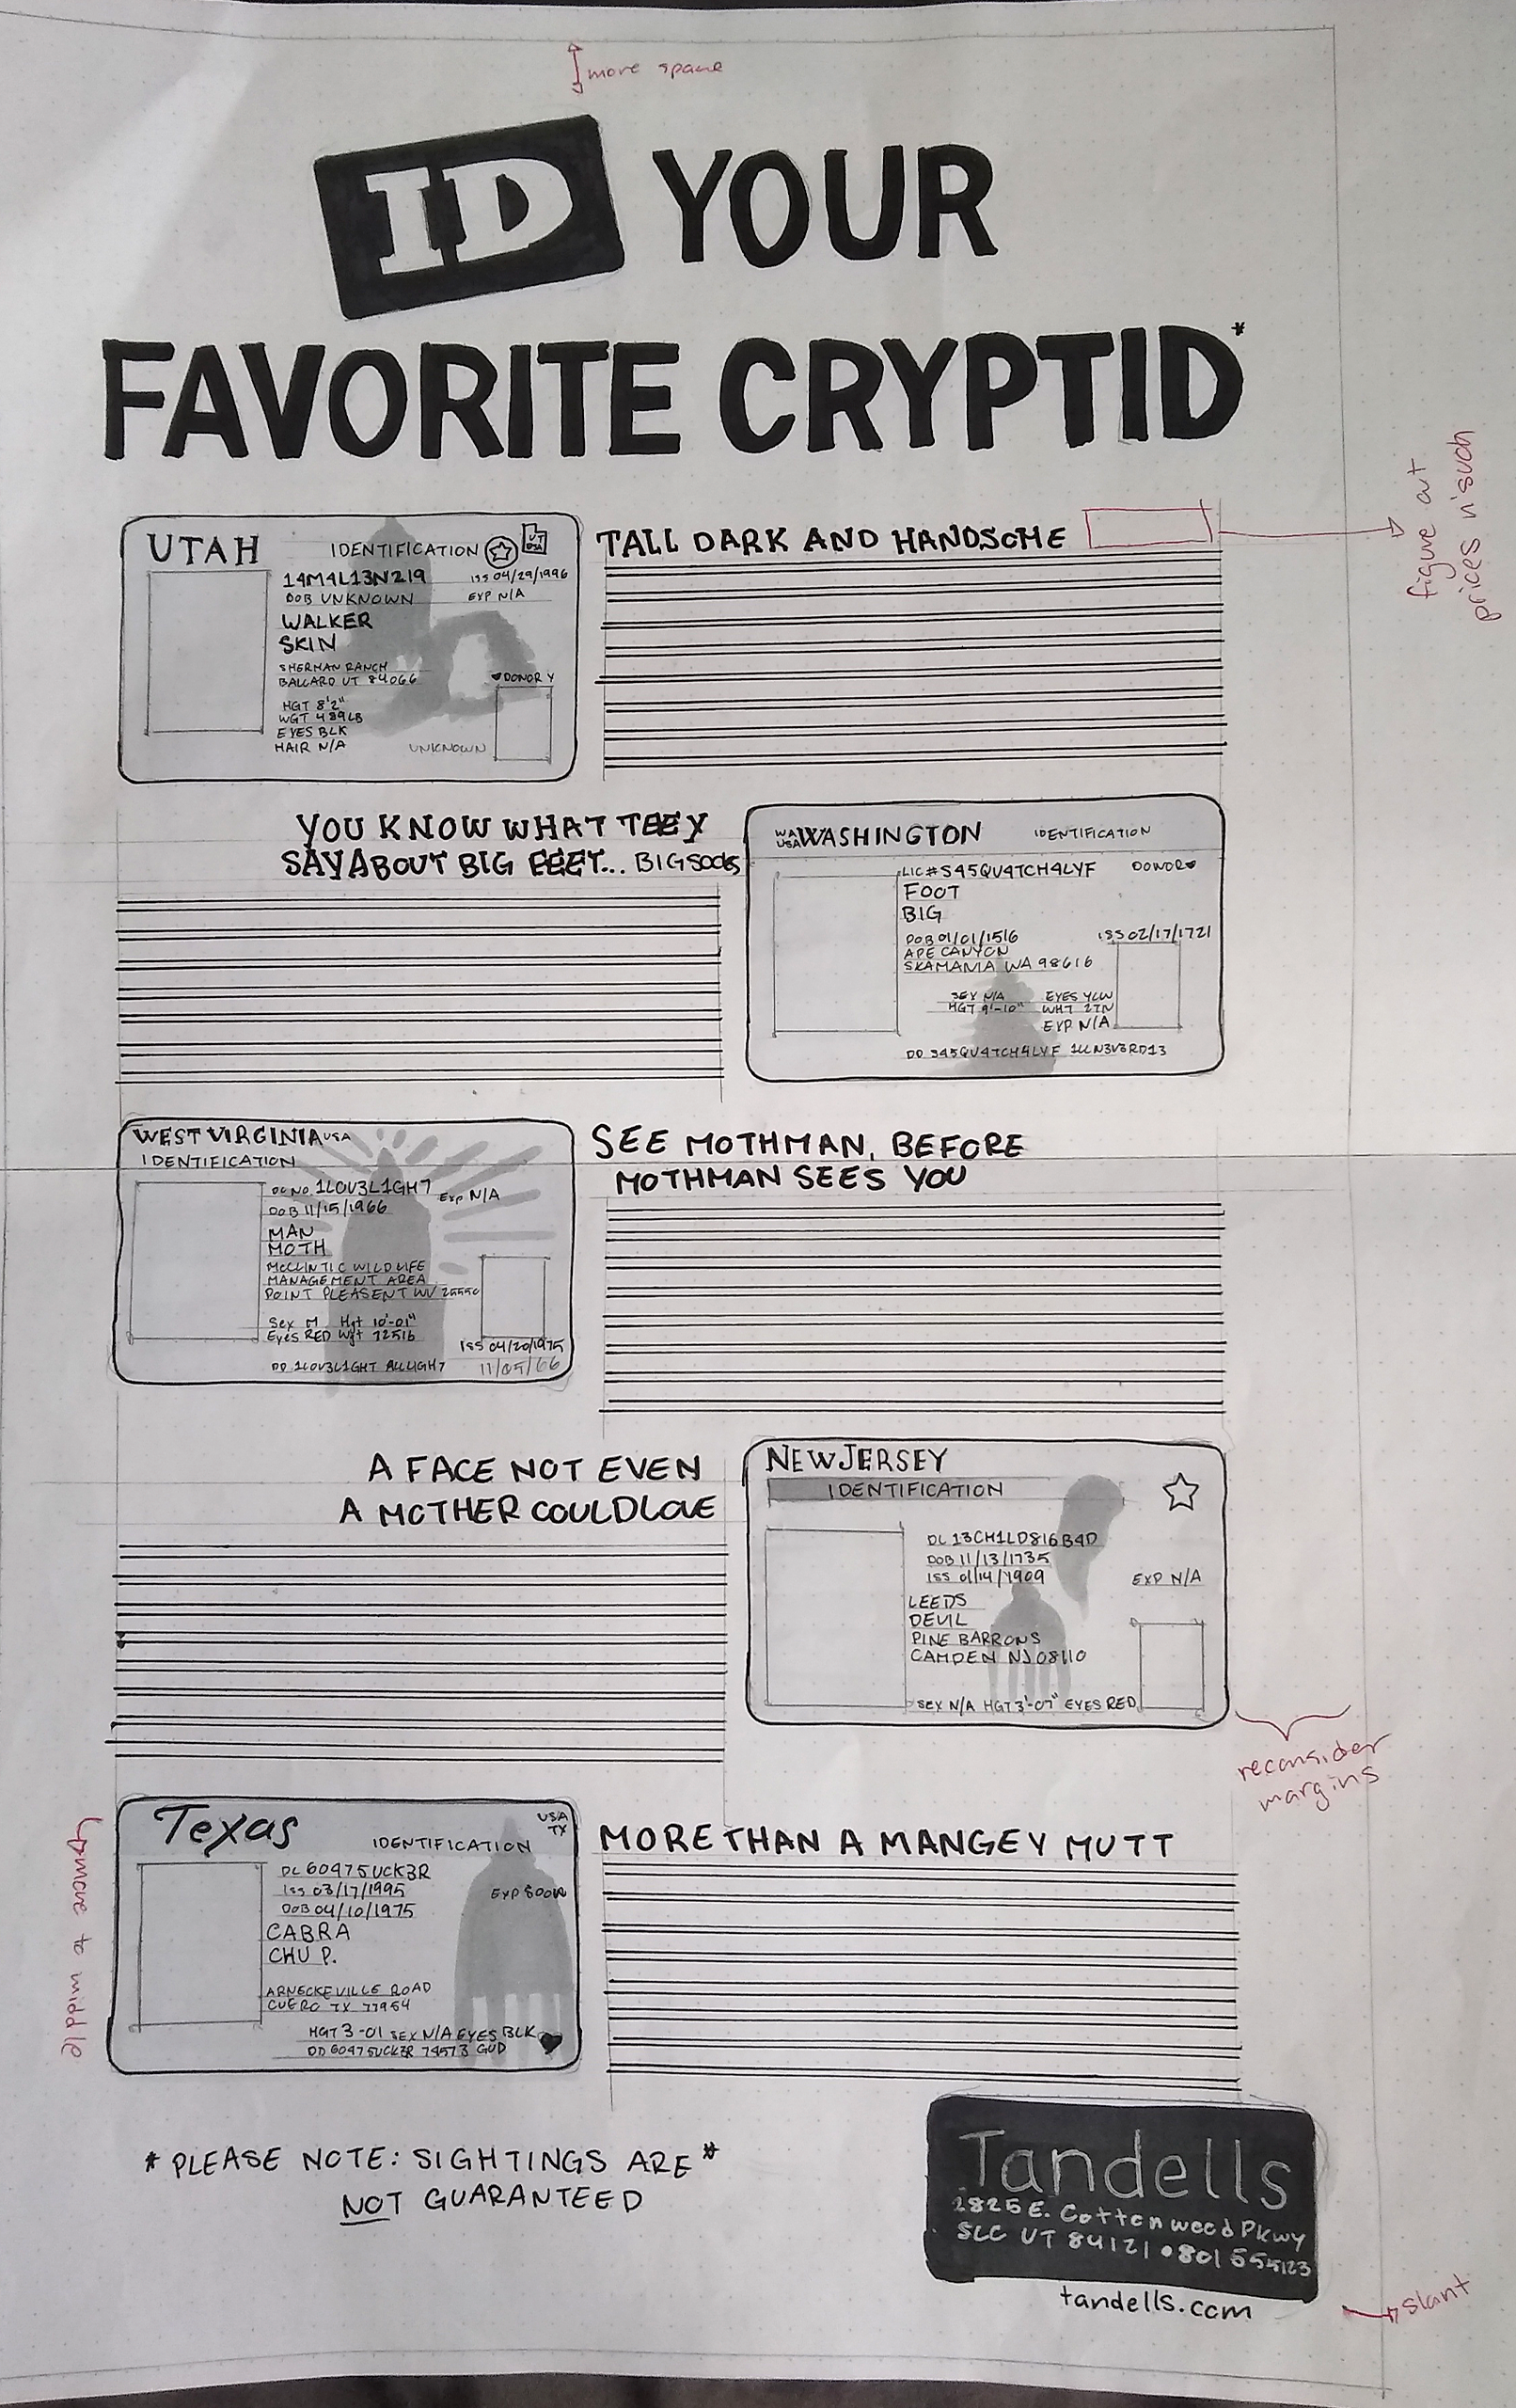 more space
ID YOUR
FAVORITE CRYPTID*
figure out
prices n'such
UTAH
IDENTIFICATION
UT
USA
14M4L13N219
ISS 04/29/1996
DOB UNKNOWN
EXP N/A
WALKER
SKIN
SHERMAN RANCH
BALLARD UT 84066
DONOR Y
HGT 8'2"
WGT 489LB
EYES BLK
HAIR N/A
UNKNOWN
TALL DARK AND HANDSOME
YOU KNOW WHAT THEY
SAY ABOUT BIG FEET... BIG SOCKS
WA
USA WASHINGTON
IDENTIFICATION
LIC# S45QU4TCH4LYF
DONOR
FOOT
BIG
DOB 01/01/1516
ISS 02/17/1721
APE CANYON
SKAMANIA WA 98616
SEX N/A EYES YLW
HGT 9'-10" WHT 2TN
EXP N/A
DD S45QU4TCH4LYF 1LLN3V3RD13
WEST VIRGINIA USA
IDENTIFICATION
DL NO. 1LOV3L1GH7
EXP N/A
DOB 11/15/1966
MAN
MOTH
McCLINTIC WILDLIFE
MANAGEMENT AREA
POINT PLEASENT WV 25550
Sex M Hgt 10'-01"
Eyes RED Wgt 725lb
ISS 04/20/1975
DD 1LOV3L1GHT ALLLIGH7
11/05/66
SEE MOTHMAN, BEFORE
MOTHMAN SEES YOU
A FACE NOT EVEN
A MOTHER COULD LOVE
NEW JERSEY
IDENTIFICATION
DL 13CH1LD816B4D
DOB 11/13/1735
ISS 01/14/1909
EXP N/A
LEEDS
DEVIL
PINE BARRONS
CAMDEN NJ 08110
SEX N/A HGT 3'-07" EYES RED
reconsider
margins
move to middle
Texas
USA
TX
IDENTIFICATION
DL 60475UCK3R
ISS 03/17/1995
EXP SOON
DOB 04/10/1975
CABRA
CHU P.
ARNECKEVILLE ROAD
CUERO TX 77954
HGT 3-01 SEX N/A EYES BLK
DD 60475UCK3R 74573 GUD
MORE THAN A MANGEY MUTT
* PLEASE NOTE: SIGHTINGS ARE *
NOT GUARANTEED
Tandells
2825 E. Cottonwood Pkwy
SLC UT 84121 • 801 555 5123
tandells.com
slant